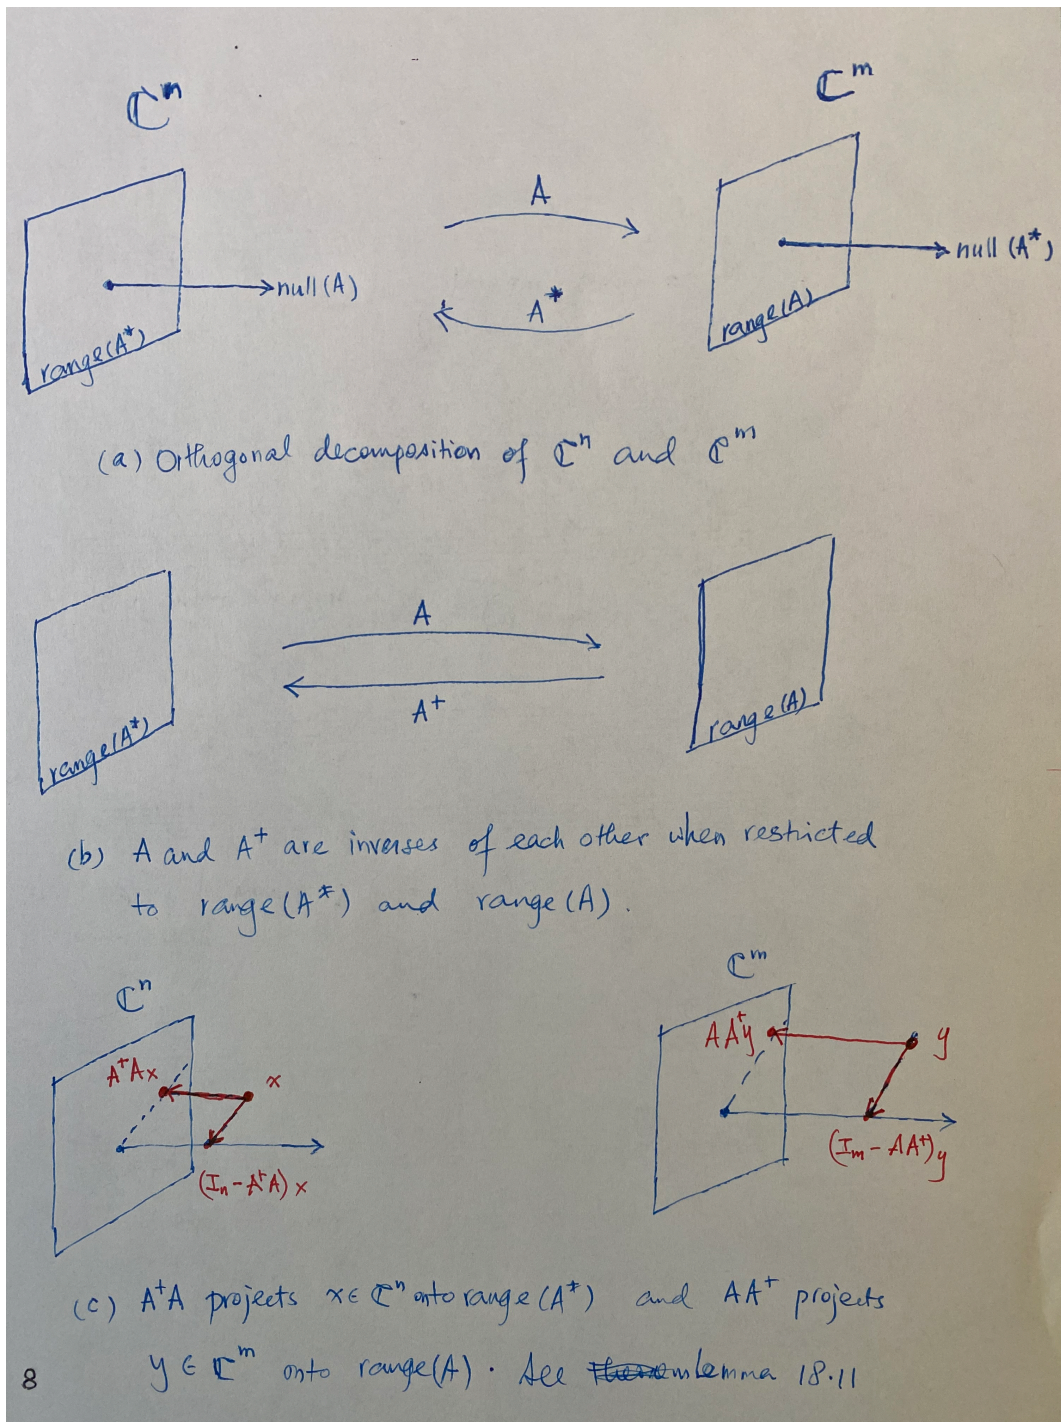 ℂᵐ
ℂᵐ
A
null(A)
null(A*)
A*
range(A*)
range(A)
(a) Orthogonal decomposition of ℂⁿ and ℂᵐ
A
A⁺
range(A*)
range(A)
(b) A and A⁺ are inverses of each other when restricted
to range(A*) and range(A).
ℂⁿ
ℂᵐ
A⁺Ax
x
(Iₙ - A⁺A)x
AA⁺y
y
(Iₘ - AA⁺)y
(c) A⁺A projects x ∈ ℂⁿ onto range(A*) and AA⁺ projects
y ∈ ℂᵐ onto range(A). See Lemma 18.11
8